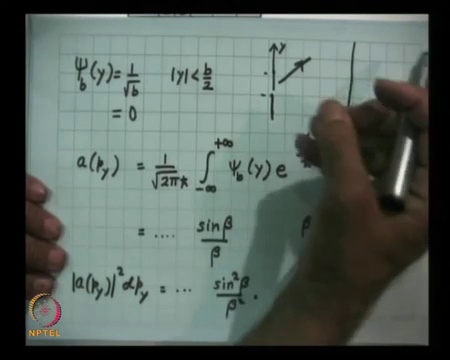 Ψ_b(y) = 1/√b |y| < b/2
= 0
y
a(p_y) = 1/√(2πħ) ∫_{-∞}^{+∞} Ψ_b(y) e
= .... sinβ/β β
|a(p_y)|² dp_y = ... sin²β/β² .
NPTEL